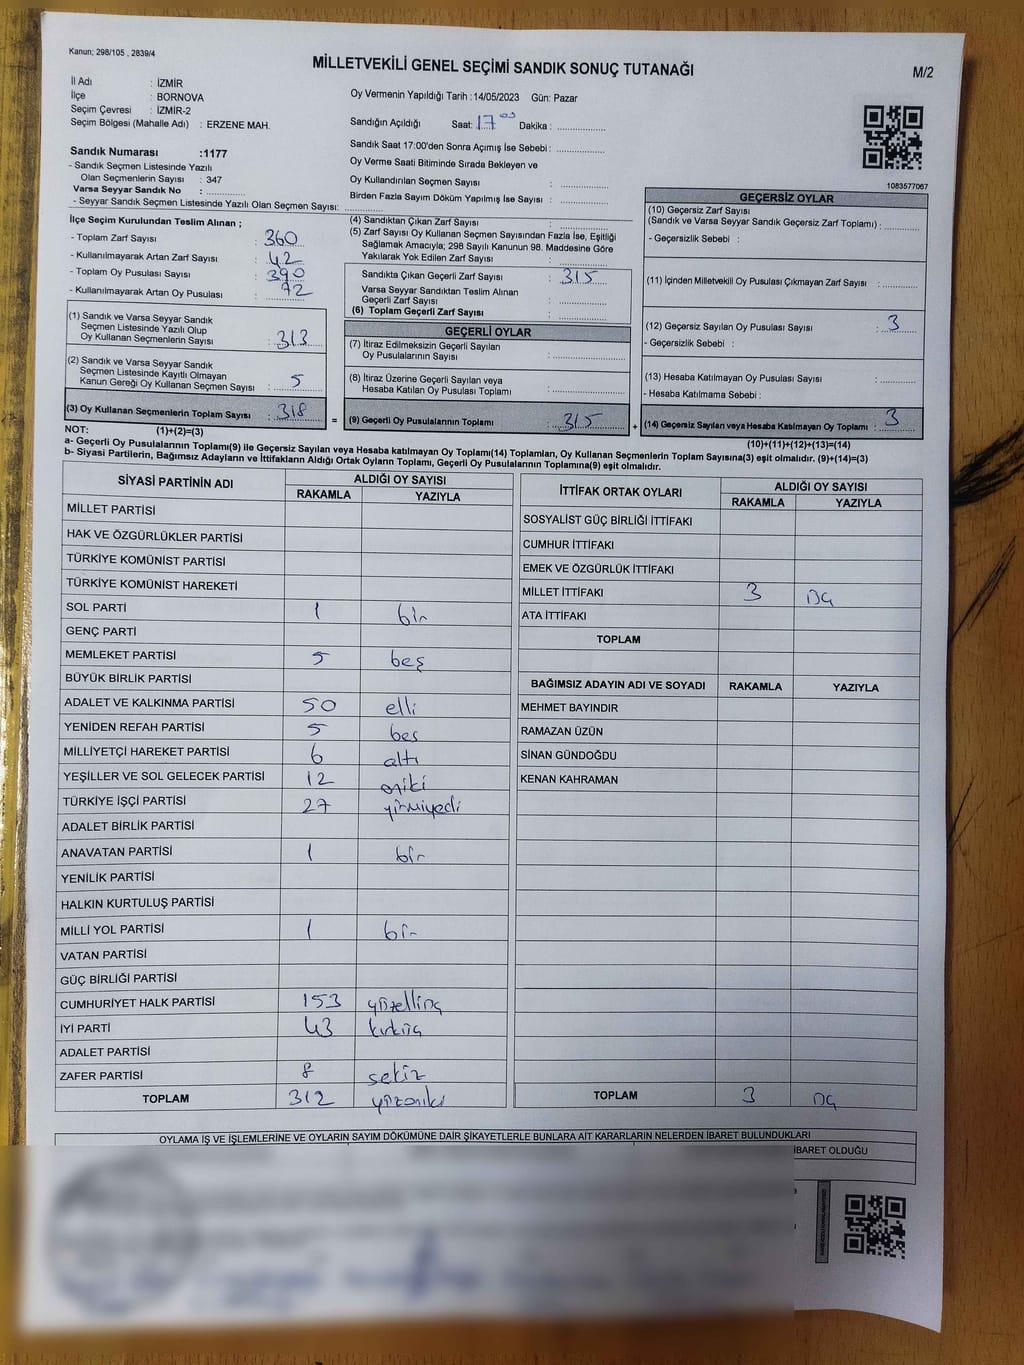 Kanun; 298/105 , 2839/4
MİLLETVEKİLİ GENEL SEÇİMİ SANDIK SONUÇ TUTANAĞI
M/2
İl Adı : İZMİR
İlçe : BORNOVA
Seçim Çevresi : İZMİR-2
Seçim Bölgesi (Mahalle Adı) : ERZENE MAH.
Oy Vermenin Yapıldığı Tarih :14/05/2023 Gün: Pazar
Sandığın Açıldığı Saat: 17 Dakika :
Sandık Saat 17:00'den Sonra Açımış İse Sebebi :
Oy Verme Saati Bitiminde Sırada Bekleyen ve
Oy Kullandırılan Seçmen Sayısı :
Birden Fazla Sayım Döküm Yapılmış İse Sayısı :
Sandık Numarası :1177
- Sandık Seçmen Listesinde Yazılı
Olan Seçmenlerin Sayısı : 347
Varsa Seyyar Sandık No :
- Seyyar Sandık Seçmen Listesinde Yazılı Olan Seçmen Sayısı:
1083577067
İlçe Seçim Kurulundan Teslim Alınan ;
- Toplam Zarf Sayısı : 360
- Kullanılmayarak Artan Zarf Sayısı : 42
- Toplam Oy Pusulası Sayısı : 390
- Kullanılmayarak Artan Oy Pusulası : 72
(1) Sandık ve Varsa Seyyar Sandık
Seçmen Listesinde Yazılı Olup
Oy Kullanan Seçmenlerin Sayısı : 313
(2) Sandık ve Varsa Seyyar Sandık
Seçmen Listesinde Kayıtlı Olmayan
Kanun Gereği Oy Kullanan Seçmen Sayısı : 5
(3) Oy Kullanan Seçmenlerin Toplam Sayısı : 318
(1)+(2)=(3)
(4) Sandıktan Çıkan Zarf Sayısı :
(5) Zarf Sayısı Oy Kullanan Seçmen Sayısından Fazla İse, Eşitliği
Sağlamak Amacıyla; 298 Sayılı Kanunun 98. Maddesine Göre
Yakılarak Yok Edilen Zarf Sayısı :
Sandıkta Çıkan Geçerli Zarf Sayısı : 315
Varsa Seyyar Sandıktan Teslim Alınan
Geçerli Zarf Sayısı :
(6) Toplam Geçerli Zarf Sayısı :
GEÇERLİ OYLAR
(7) İtiraz Edilmeksizin Geçerli Sayılan
Oy Pusulalarının Sayısı :
(8) İtiraz Üzerine Geçerli Sayılan veya
Hesaba Katılan Oy Pusulası Toplamı :
= (9) Geçerli Oy Pusulalarının Toplamı : 315 +
GEÇERSİZ OYLAR
(10) Geçersiz Zarf Sayısı
(Sandık ve Varsa Seyyar Sandık Geçersiz Zarf Toplamı) :
- Geçersizlik Sebebi :
(11) İçinden Milletvekili Oy Pusulası Çıkmayan Zarf Sayısı :
(12) Geçersiz Sayılan Oy Pusulası Sayısı : 3
- Geçersizlik Sebebi :
(13) Hesaba Katılmayan Oy Pusulası Sayısı :
- Hesaba Katılmama Sebebi :
(14) Geçersiz Sayılan veya Hesaba Katılmayan Oy Toplamı : 3
(10)+(11)+(12)+(13)=(14)
NOT:
a- Geçerli Oy Pusulalarının Toplamı(9) ile Geçersiz Sayılan veya Hesaba katılmayan Oy Toplamı(14) Toplamları, Oy Kullanan Seçmenlerin Toplam Sayısına(3) eşit olmalıdır. (9)+(14)=(3)
b- Siyasi Partilerin, Bağımsız Adayların ve İttifakların Aldığı Ortak Oyların Toplamı, Geçerli Oy Pusulalarının Toplamına(9) eşit olmalıdır.
SİYASİ PARTİNİN ADI ALDIĞI OY SAYISI
RAKAMLA YAZIYLA
MİLLET PARTİSİ
HAK VE ÖZGÜRLÜKLER PARTİSİ
TÜRKİYE KOMÜNİST PARTİSİ
TÜRKİYE KOMÜNİST HAREKETİ
SOL PARTİ 1 bir
GENÇ PARTİ
MEMLEKET PARTİSİ 5 beş
BÜYÜK BİRLİK PARTİSİ
ADALET VE KALKINMA PARTİSİ 50 elli
YENİDEN REFAH PARTİSİ 5 bes
MİLLİYETÇİ HAREKET PARTİSİ 6 altı
YEŞİLLER VE SOL GELECEK PARTİSİ 12 oniki
TÜRKİYE İŞÇİ PARTİSİ 27 yirmiyedi
ADALET BİRLİK PARTİSİ
ANAVATAN PARTİSİ 1 bir
YENİLİK PARTİSİ
HALKIN KURTULUŞ PARTİSİ
MİLLİ YOL PARTİSİ 1 bir
VATAN PARTİSİ
GÜÇ BİRLİĞİ PARTİSİ
CUMHURİYET HALK PARTİSİ 153 yüzelliüç
İYİ PARTİ 43 kırküç
ADALET PARTİSİ
ZAFER PARTİSİ 8 sekiz
TOPLAM 312 yüzoniki
İTTİFAK ORTAK OYLARI ALDIĞI OY SAYISI
RAKAMLA YAZIYLA
SOSYALİST GÜÇ BİRLİĞİ İTTİFAKI
CUMHUR İTTİFAKI
EMEK VE ÖZGÜRLÜK İTTİFAKI
MİLLET İTTİFAKI 3 üç
ATA İTTİFAKI
TOPLAM
BAĞIMSIZ ADAYIN ADI VE SOYADI RAKAMLA YAZIYLA
MEHMET BAYINDIR
RAMAZAN ÜZÜN
SİNAN GÜNDOĞDU
KENAN KAHRAMAN
TOPLAM 3 üç
OYLAMA İŞ VE İŞLEMLERİNE VE OYLARIN SAYIM DÖKÜMÜNE DAİR ŞİKAYETLERLE BUNLARA AİT KARARLARIN NELERDEN İBARET BULUNDUKLARI
İBARET OLDUĞU